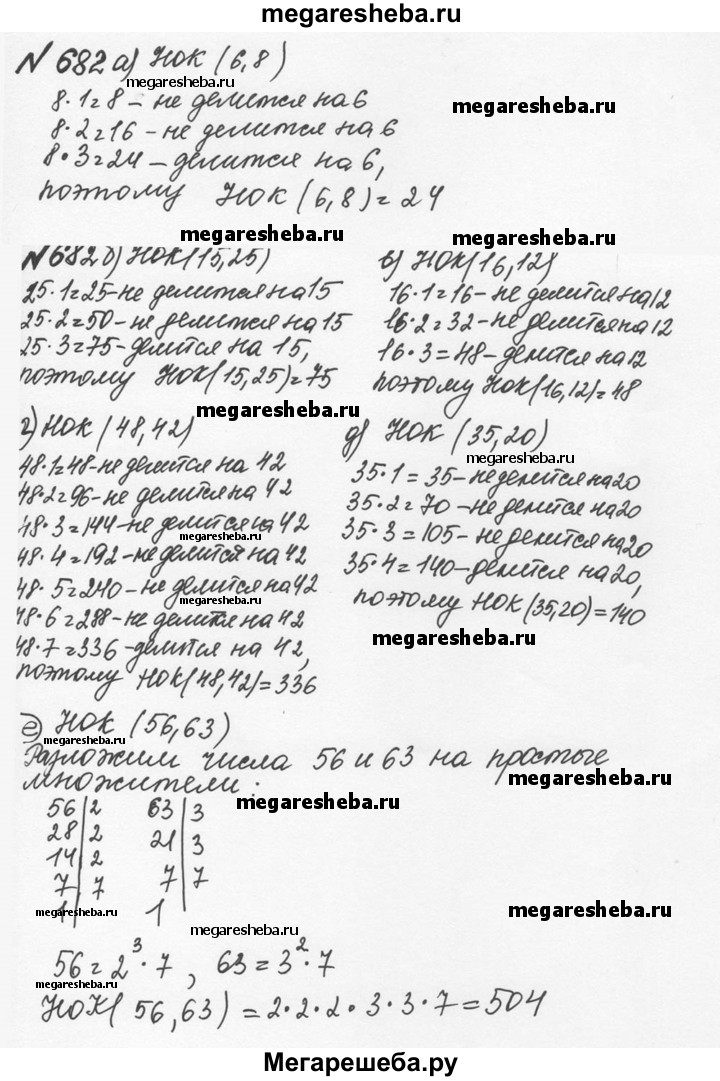 megaresheba.ru
№682 а) НОК (6,8)
megaresheba.ru
8·1=8 – не делится на 6
megaresheba.ru
8·2=16 – не делится на 6
8·3=24 – делится на 6,
поэтому НОК (6,8)=24
megaresheba.ru
megaresheba.ru
№682 б) НОК(15,25)
25·1=25-не делится на 15
25·2=50- не делится на 15
25·3=75- делится на 15,
поэтому НОК(15,25)=75
в) НОК(16,12)
16·1=16- не делится на 12
16·2=32- не делится на 12
16·3=48- делится на 12
поэтому НОК(16,12)=48
megaresheba.ru
г) НОК (48,42)
48·1=48-не делится на 42
48·2=96- не делится на 42
48·3=144-не делится на 42
megaresheba.ru
48·4=192-не делится на 42
48·5=240-не делится на 42
megaresheba.ru
48·6=288-не делится на 42
48·7=336-делится на 42,
поэтому НОК(48,42)=336
д) НОК (35,20)
35·1=35-не делится на 20
35·2=70 -не делится на 20
35·3=105-не делится на 20
35·4=140-делится на 20,
поэтому НОК(35,20)=140
megaresheba.ru
е) НОК (56,63)
megaresheba.ru
Разложим числа 56 и 63 на простые
megaresheba.ru
множители:
megaresheba.ru
56 | 2 63 | 3
28 | 2 21 | 3
14 | 2
7 | 7 7 | 7
1 | 1 |
megaresheba.ru
megaresheba.ru
megaresheba.ru
56=2³·7, 63=3²·7
megaresheba.ru
НОК(56,63)=2·2·2·3·3·7=504
megaresheba.ru
Мегарешеба.ру